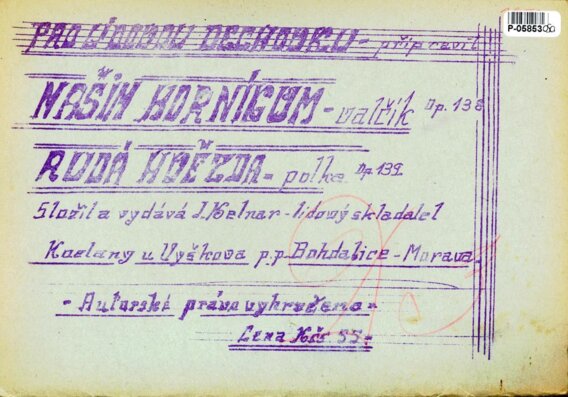 P-0585300
PRO LIDOVOU DECHOVKU - připravil
NAŠIM HORNÍGUM - valčík Op. 138
RUDÁ HVĚZDA - polka Op. 139
Složil a vydává J. Kelnar - lidový skladatel
Kozlany u Vyškova p.p. Bohdalice - Morava.
- Autorské práva vyhrazena -
Cena Kčs 55.-